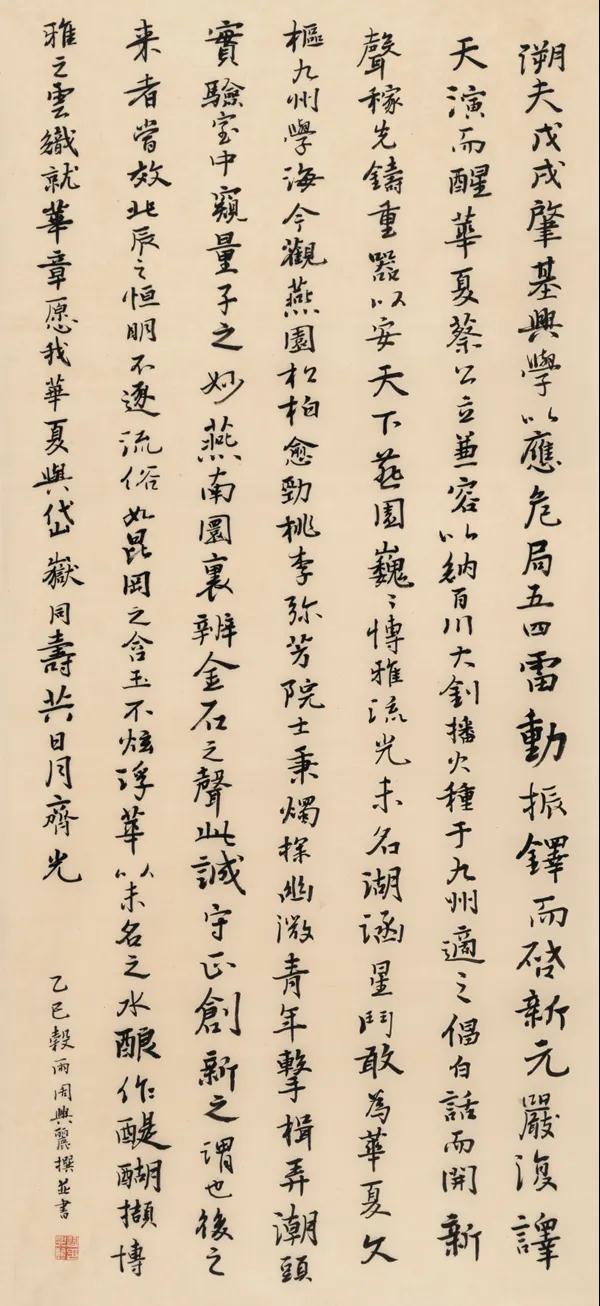 溯夫戊戌肇基興學以應危局五四雷動振鐸而啓新元嚴復譯
天演而醒華夏蔡公立兼容以納百川大釗播火種于九州適之倡白話而開新
聲稼先鑄重器以安天下燕園巍巍博雅流光未名湖涵星鬥敢為華夏文
樞九州學海今觀燕園松柏愈勁桃李弥芳院士秉燭探幽微青年擊楫弄潮頭
實驗室中窺量子之妙燕南園裏辨金石之聲此誠守正創新之謂也後之
来者當效北辰之恒明不逐流俗如昆岡之含玉不炫浮華以未名之水釀作醍醐擷博
雅之雲織就華章愿我華夏與岱嶽同壽共日月齊光
乙巳穀雨周興麗撰並書